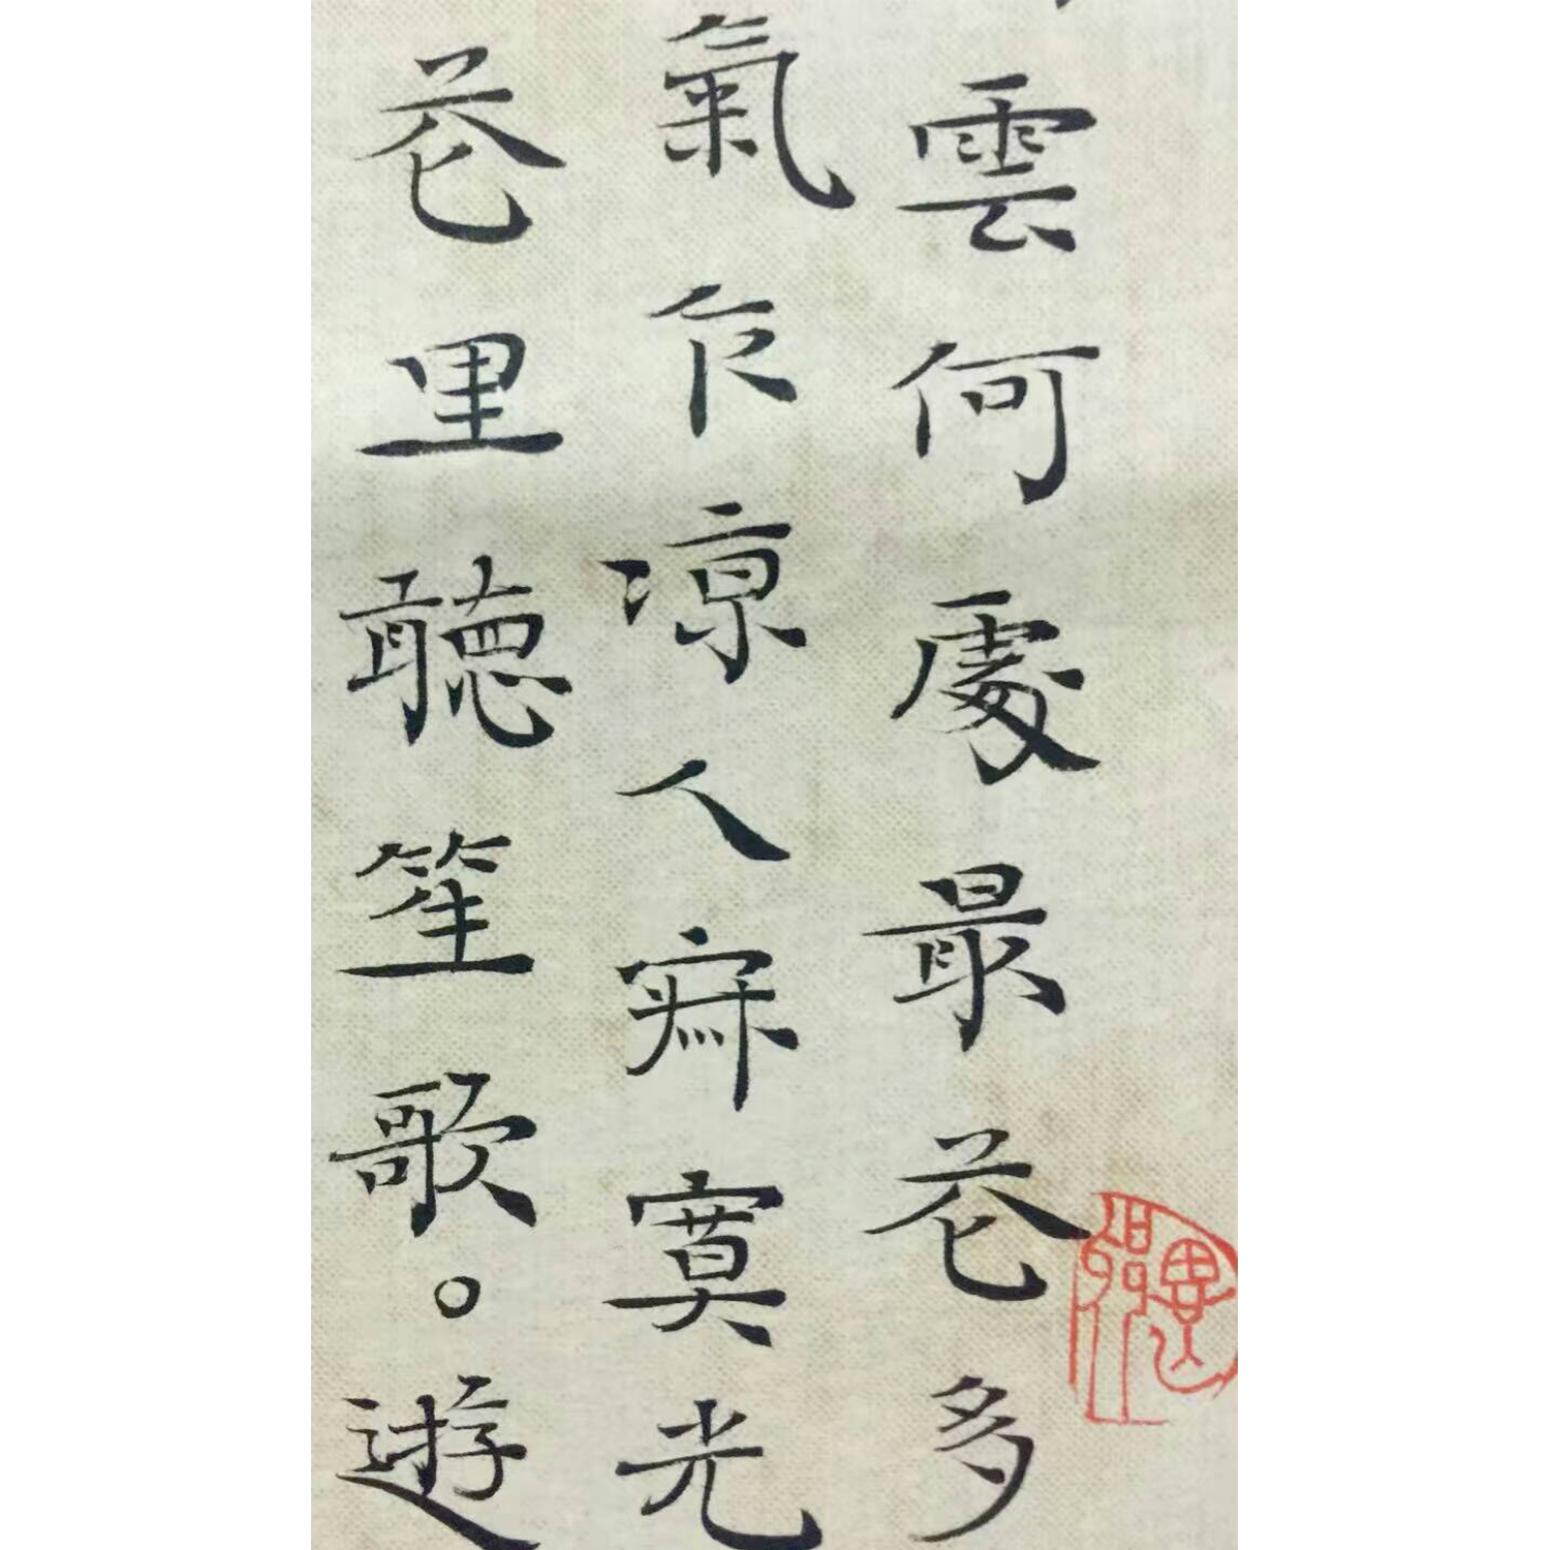 雲何處最花多
氣乍涼人寂寞光
花里聽笙歌。遊